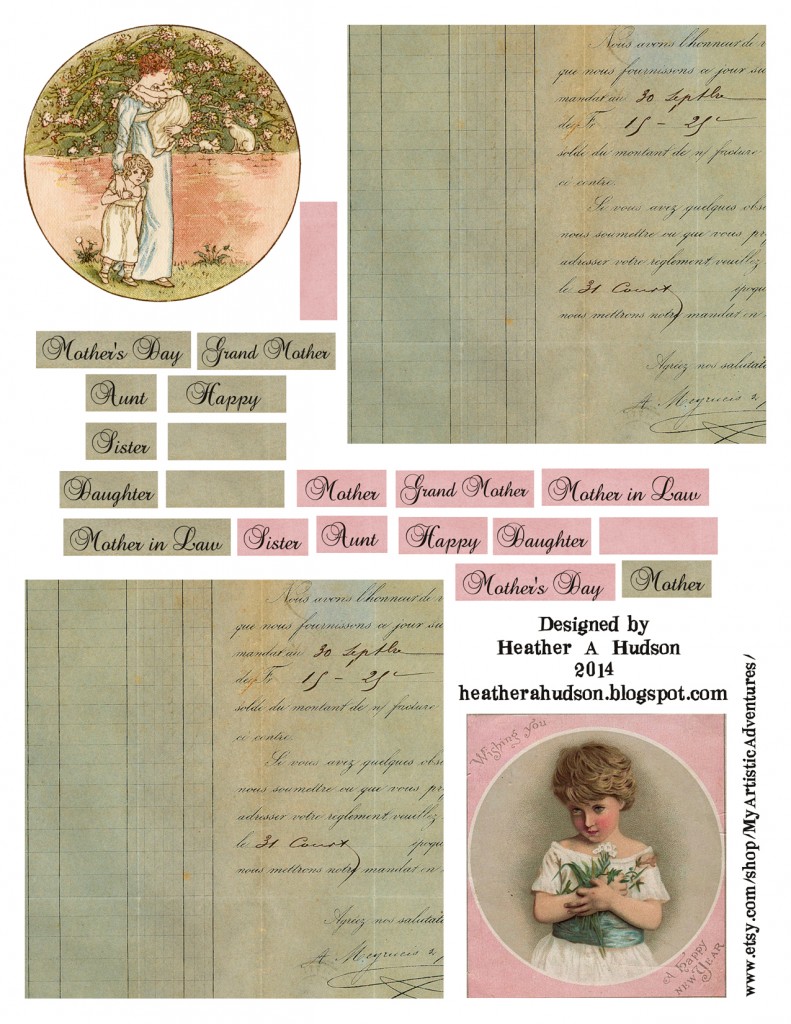 Nous avons l'honneur de
que nous fournissons ce jour su
mandat au 30 Septbre
de Fr 15 - 25c
solde du montant de n/ facture
ci contre.
Si vous avez quelques obs
nous soumettre ou que vous pr
adresser votre reglement veuillez
le 31 Court epoqu
nous mettrons notre mandat en
Agréez nos salutat
Mother's Day
Grand Mother
Aunt
Happy
Sister
Daughter
Mother
Grand Mother
Mother in Law
Mother in Law
Sister
Aunt
Happy
Daughter
Mother's Day
Mother
Nous avons l'honneur de
que nous fournissons ce jour su
mandat au 30 Septbre
de Fr 15 - 25c
solde du montant de n/ facture
ci contre.
Si vous avez quelques obs
nous soumettre ou que vous pr
adresser votre reglement veuillez
le 31 Court epoqu
nous mettrons notre mandat en
Agréez nos salutat
Designed by
Heather A Hudson
2014
heatherahudson.blogspot.com
Wishing you
A Happy
NEW YEAR
www.etsy.com/shop/MyArtisticAdventures/